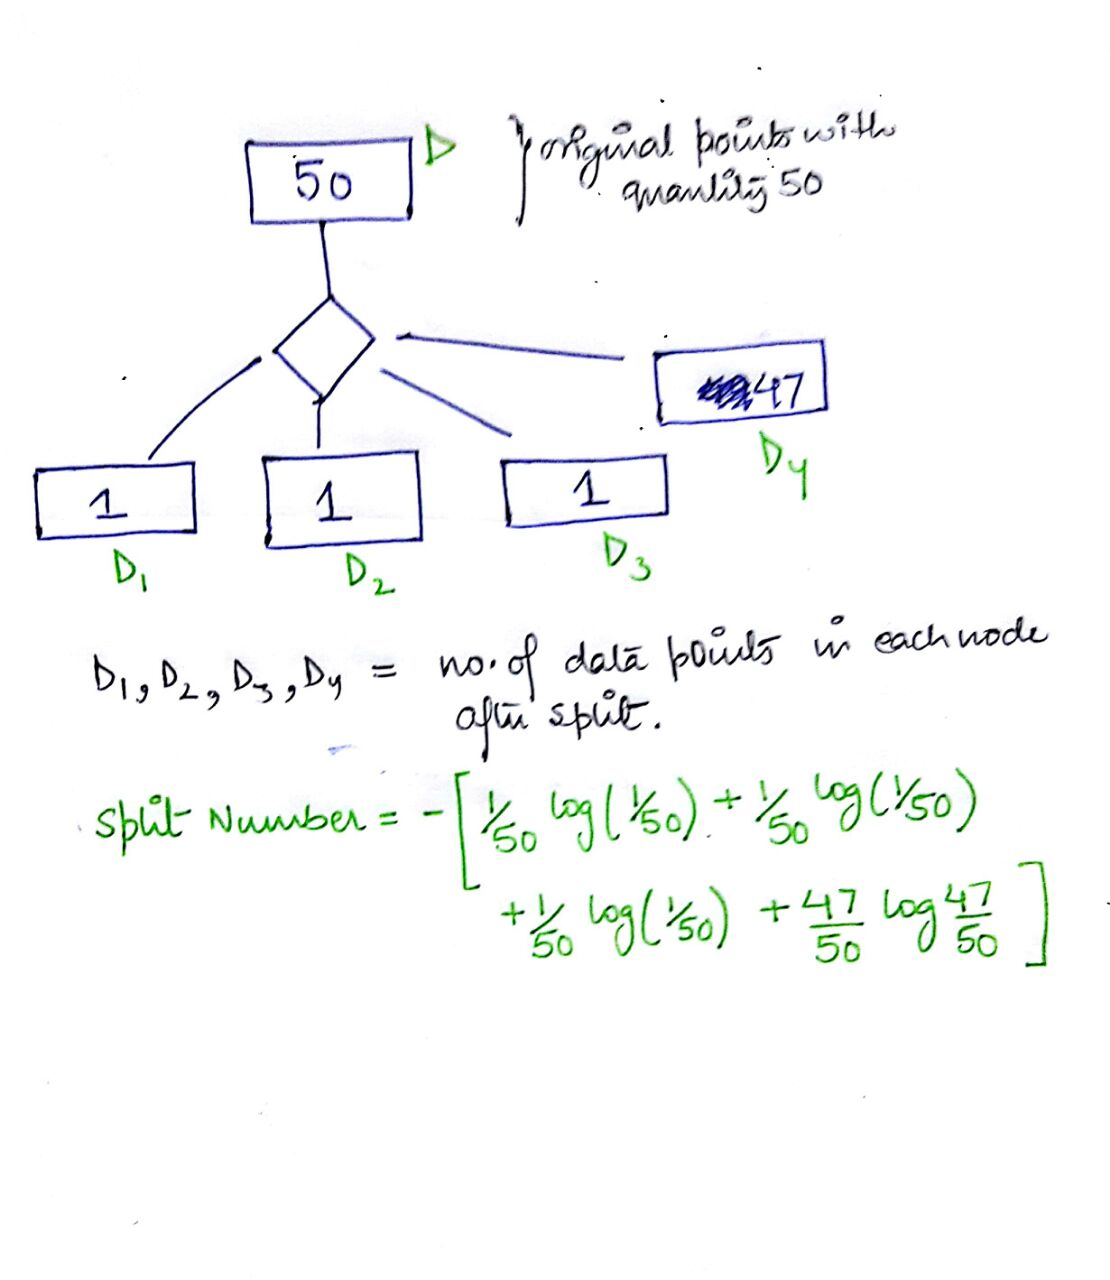 50
D
original points with
quantity 50
47
D4
1
1
1
D1
D2
D3
D1, D2, D3, D4 = no. of data points in each node
after split.
Split Number = - [ 1/50 log(1/50) + 1/50 log(1/50)
+ 1/50 log(1/50) + 47/50 log 47/50 ]